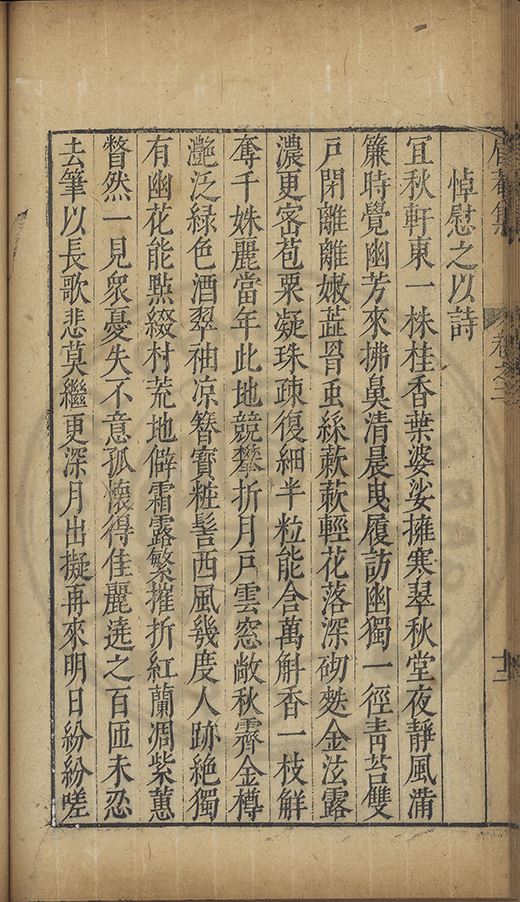 眉菴集
卷之二
悼慰之以詩
宜秋軒東一株桂香葉婆娑擁寒翠秋堂夜靜風滿
簾時覺幽芳來拂鼻清晨曳履訪幽獨一徑青苔雙
戸閉離離嫩蕋罥虫絲蔌蔌輕花落深砌麩金泫露
濃更宻苞粟凝珠疎復細半粒能含萬斛香一枝鮮
奪千姝麗當年此地競攀折月戸雲窓敞秋霽金樽
灧泛緑色酒翠袖凉簪寳粧髻西風幾度人跡絶獨
有幽花能點綴村荒地僻霜露繁摧折紅蘭凋紫蕙
瞥然一見衆憂失不意孤懷得佳麗遶之百匝未忍
去筆以長歌悲莫繼更深月出擬再來明日紛紛嗟